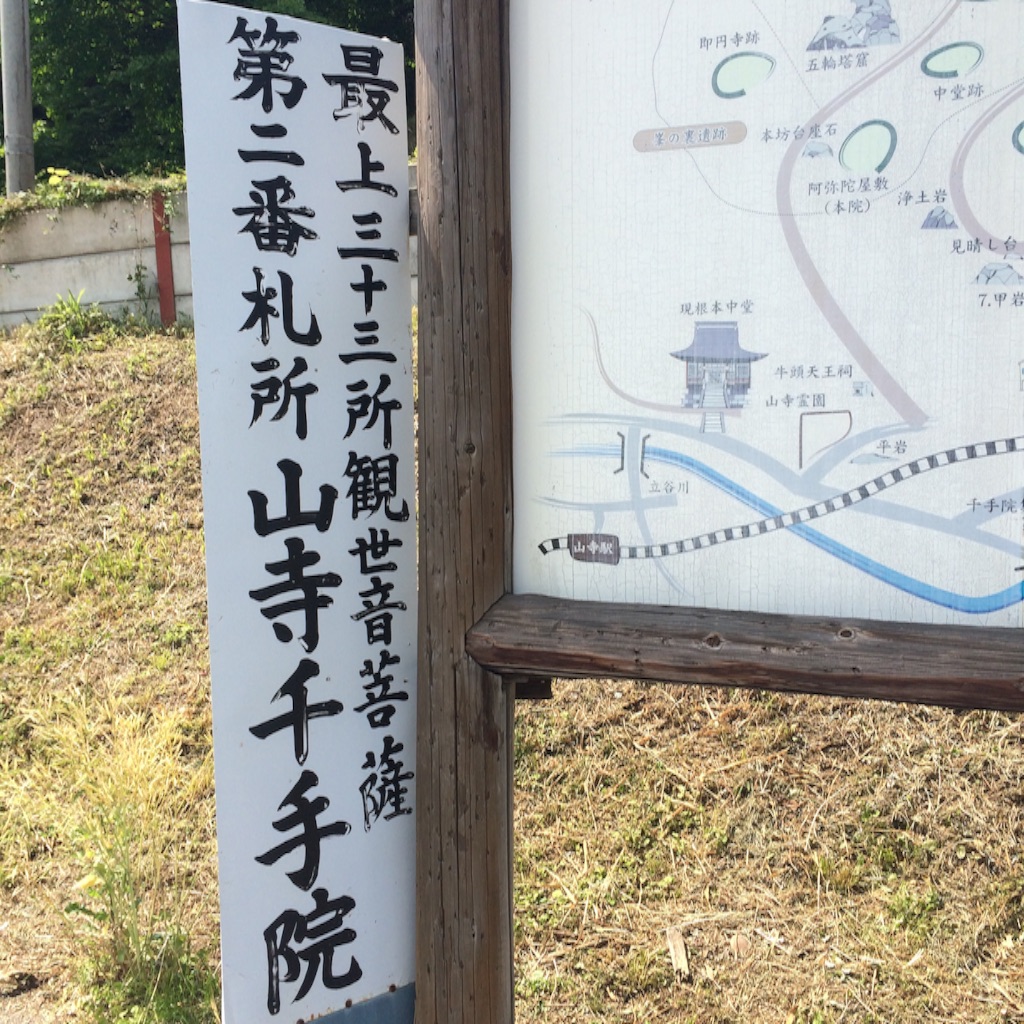 最上三十三所観世音菩薩
第二番札所 山寺千手院
即円寺跡
五輪塔窟
中堂跡
峯の裏遺跡
本坊台座石
阿弥陀屋敷
（本院）
浄土岩
見晴し台
7.甲岩
現根本中堂
牛頭天王祠
山寺霊園
平岩
立谷川
千手院
山寺駅